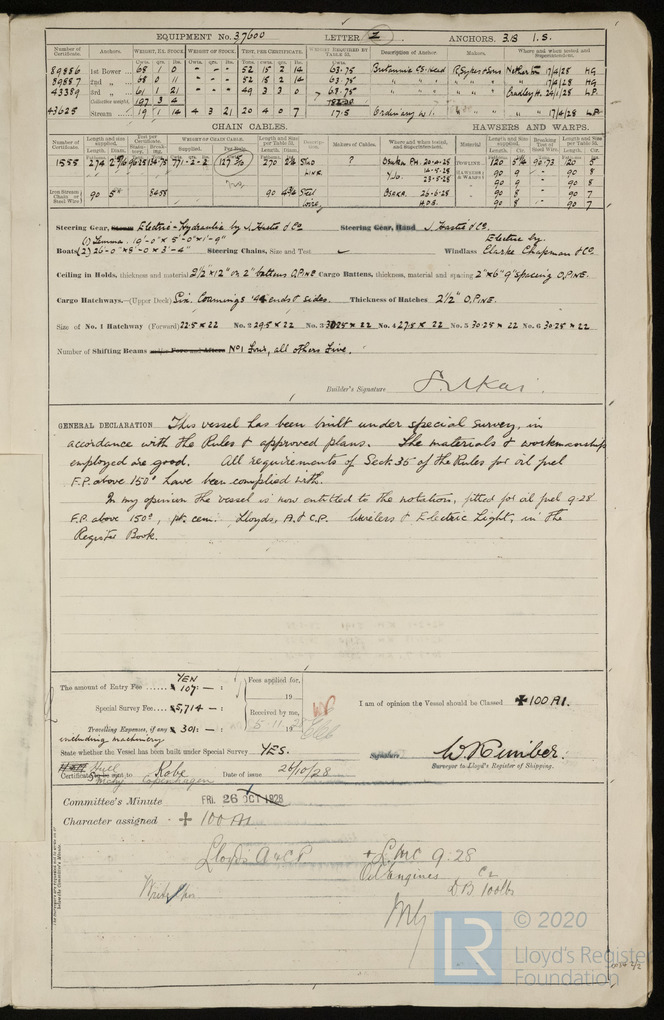 EQUIPMENT No. 37600 LETTER Z ANCHORS. 3B 1.S.
Number of Certificate. Anchors. WEIGHT, EX. STOCK WEIGHT OF STOCK. TEST, PER CERTIFICATE. WEIGHT REQUIRED BY TABLE 31. Description of Anchor. Makers. Where and when tested and Superintendent.
89886 1st Bower 68 1 0 - - - 52 15 2 14 63.75 Britannia CS Head R. Sykes & Sons Netherton 17/4/28 HG
89887 2nd „ 68 0 11 - - - 52 15 2 14 63.75 " " " " " " " 17/4/28 HG
43389 3rd „ 61 1 21 - - - 49 3 3 0 63.75 " " " Cradley H. 24/1/28 LP.
Collective weight 197 3 4
43625 Stream 19 1 14 4 3 21 20 4 0 7 17.5 Ordinary W.I. " " 17/4/28 LP.
CHAIN CABLES. HAWSERS AND WARPS.
Number of Certificate. Length and size supplied. Test per Certificate. WEIGHT OF CHAIN CABLE. Length and Size per Table 31. Description. Makers of Cables. Where and when tested, and Superintendent. Material Length and Size supplied. Breaking Test of Steel Wire. Length and Size per Table 31.
Length. Diam. Supplied. Per Rule. Length. Diam. Length. Cir. Length. Cir.
1555 274 771-2-2 270 Stud Link ? Osaka 20-4-28 TOWLINE 120 5¼ 90.73 120 5
14-5-28 HAWSERS & WARPS 90 9 - 90 8
23-5-28 90 9 - 90 8
90 8 - 90 7
Iron Stream Chain or Steel Wire 90 90 4¾ Steel Wire Osaka 26-6-28 90 8 - 90 7
Steering Gear, Steam Electric-Hydraulic by J. Hastie & Co Steering Gear, Hand J. Hastie & Co.
Boats (1) Gemma. 19'-0" x 5'-0" x 1'-9"
(2) 26'-0" x 8'-0" x 3'-4" Steering Chains, Size and Test Windlass Electric by Clarke Chapman & Co.
Ceiling in Holds, thickness and material 2½ x 12" on 2" battens O.Pine Cargo Battens, thickness, material and spacing 2" x 6" 9" spacing O.Pine.
Cargo Hatchways.—(Upper Deck) Six. Coamings ends & sides. Thickness of Hatches 2½" O.Pine.
Size of No. 1 Hatchway (Forward) 22.5 x 22 No. 2 29.5 x 22 No. 3 30.25 x 22 No. 4 27.5 x 22 No. 5 30.25 x 22 No. 6 30.25 x 22
Number of Shifting Beams No 1 Four, all others Five.
Builder's Signature
GENERAL DECLARATION This vessel has been built under special survey, in
accordance with the Rules & approved plans. The materials & workmanship
employed are good. All requirements of Sect. 35 of the Rules for oil fuel
F.P. above 150° have been complied with.
In my opinion the vessel is now entitled to the notation, fitted for oil fuel 9-28
F.P. above 150°, pt. cem. Lloyds, A. & C.P. Wireless & Electric Light, in the
Register Book.
The amount of Entry Fee ...... YEN 107: — :
Special Survey Fee 5,714 — :
Travelling Expenses, if any 301: — :
Fees applied for,
19
Received by me,
19
I am of opinion the Vessel should be Classed ✠ 100 A1.
including machinery
State whether the Vessel has been built under Special Survey YES.
Signature
Surveyor to Lloyd's Register of Shipping.
Certificate to be sent to Kobe Date of issue 26/10/28
Copenhagen
Committee's Minute FRI. 26 OCT 1928
Character assigned ✠ 100 A1
Lloyd's A & C P + L.M.C 9.28
Oil Engines
D.B. 100 lbs
© 2020
LR Lloyd's Register
Foundation